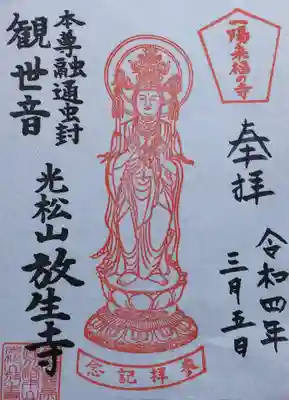 一陽来福の寺
奉拝
令和四年
三月五日
本尊融通虫封
観世音
光松山放生寺
参拝記念